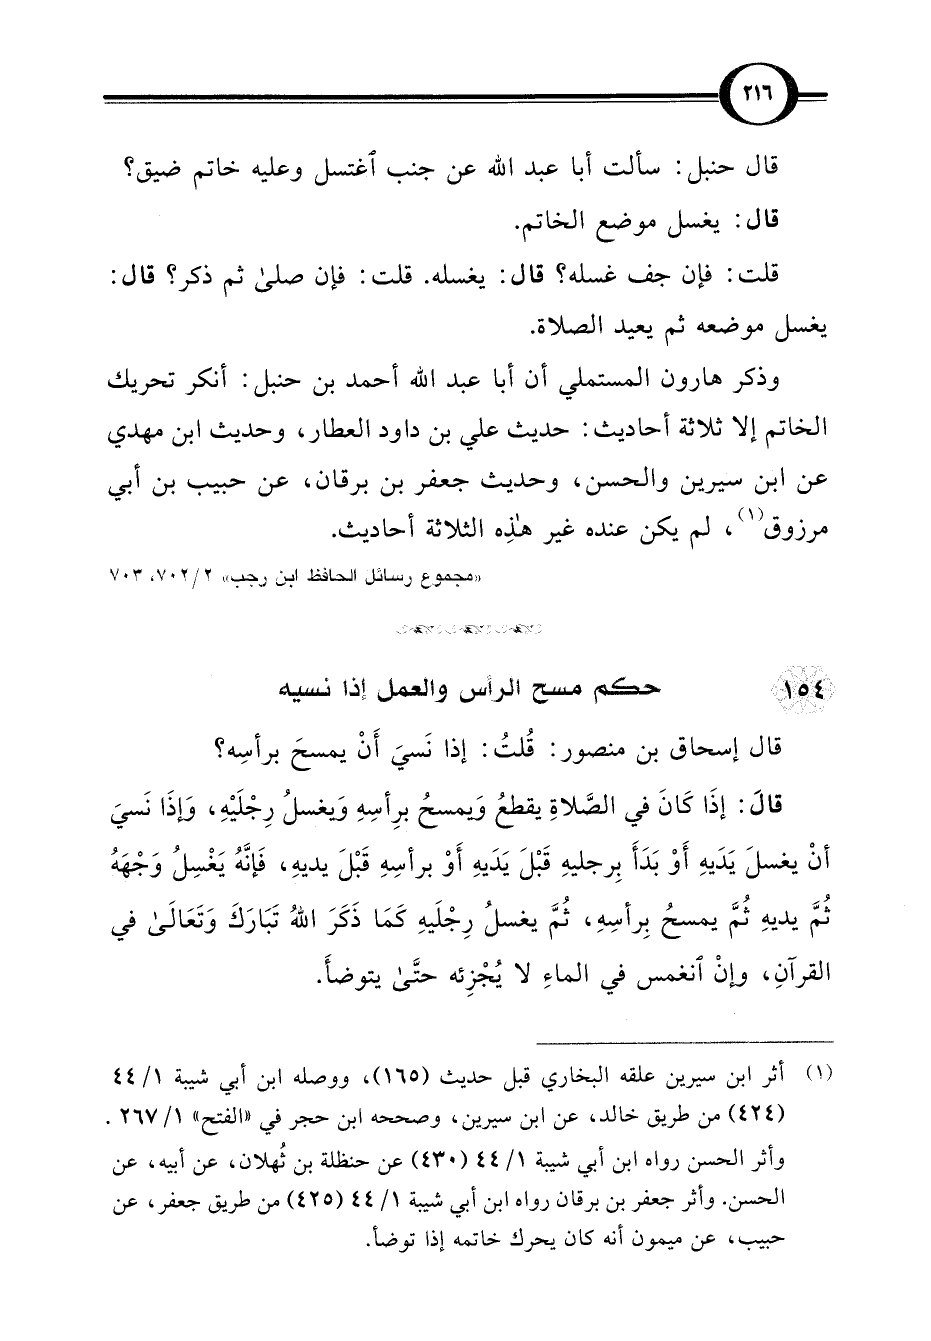 ٢١٦
قال حنبل: سألت أبا عبد الله عن جنب ٱغتسل وعليه خاتم ضيق؟
قال: يغسل موضع الخاتم.
قلت: فإن جف غسله؟ قال: يغسله. قلت: فإن صلىٰ ثم ذكر؟ قال:
يغسل موضعه ثم يعيد الصلاة.
وذكر هارون المستملي أن أبا عبد الله أحمد بن حنبل: أنكر تحريك
الخاتم إلا ثلاثة أحاديث: حديث علي بن داود العطار، وحديث ابن مهدي
عن ابن سيرين والحسن، وحديث جعفر بن برقان، عن حبيب بن أبي
مرزوق(١)، لم يكن عنده غير هٰذِه الثلاثة أحاديث.
«مجموع رسائل الحافظ ابن رجب» ٢/ ٧٠٢، ٧٠٣
١٥٤ حكم مسح الرأس والعمل إذا نسيه
قال إسحاق بن منصور: قُلتُ: إذا نَسيَ أَنْ يمسحَ برأسِه؟
قالَ: إذَا كَانَ في الصَّلاةِ يقطعُ وَيمسحُ برأسِهِ وَيغسلُ رِجْلَيْهِ، وَإذَا نَسيَ
أنْ يغسلَ يَدَيهِ أَوْ بَدَأَ بِرجليهِ قَبْلَ يَدَيهِ أَوْ برأسِهِ قَبْلَ يديهِ، فَإنَّهُ يَغْسِلُ وَجْهَهُ
ثُمَّ يديهِ ثُمَّ يمسحُ بِرأسِهِ، ثُمَّ يغسلُ رِجلَيهِ كَمَا ذَكَرَ اللهُ تَبَارَكَ وَتَعَالَىٰ في
القرآنِ، وإنْ ٱنغمس في الماءِ لا يُجْزِئه حتَّىٰ يتوضأَ.
(١) أثر ابن سيرين علقه البخاري قبل حديث (١٦٥)، ووصله ابن أبي شيبة ١/ ٤٤
(٤٢٤) من طريق خالد، عن ابن سيرين، وصححه ابن حجر في «الفتح» ١/ ٢٦٧.
وأثر الحسن رواه ابن أبي شيبة ١/ ٤٤ (٤٣٠) عن حنظلة بن ثُهلان، عن أبيه، عن
الحسن. وأثر جعفر بن برقان رواه ابن أبي شيبة ١/ ٤٤ (٤٢٥) من طريق جعفر، عن
حبيب، عن ميمون أنه كان يحرك خاتمه إذا توضأ.